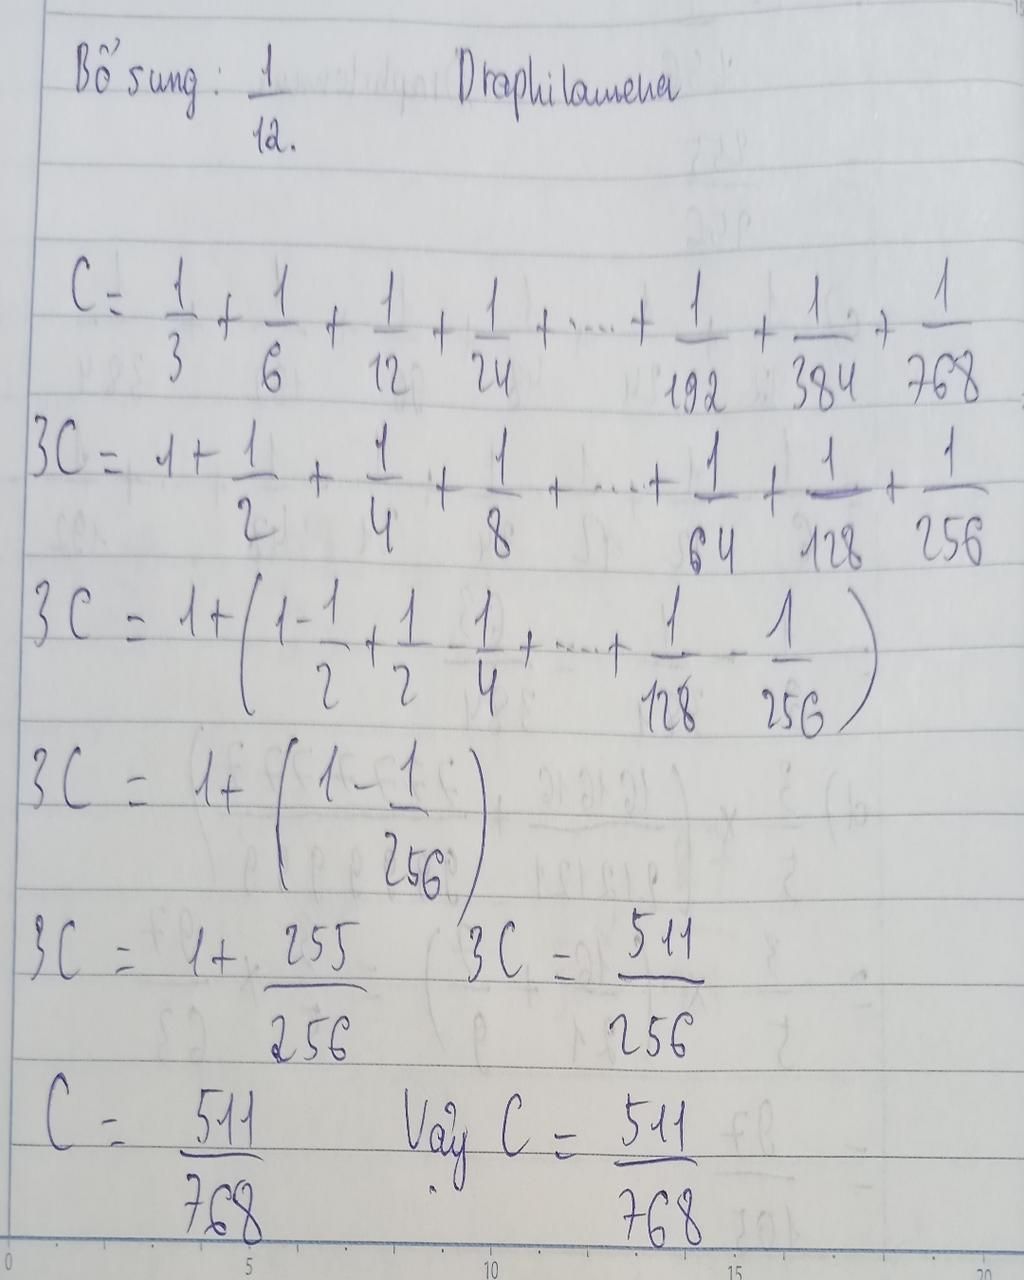 Bổ sung: 1/12. Draphilamena
C = 1/3 + 1/6 + 1/12 + 1/24 + .... + 1/192 + 1/384 + 1/768
3C = 1 + 1/2 + 1/4 + 1/8 + .... + 1/64 + 1/128 + 1/256
3C = 1 + (1 - 1/2 + 1/2 - 1/4 + .... + 1/128 - 1/256)
3C = 1 + (1 - 1/256)
3C = 1 + 255/256 3C = 511/256
C = 511/768 Vậy C = 511/768
0 5 10 15 20